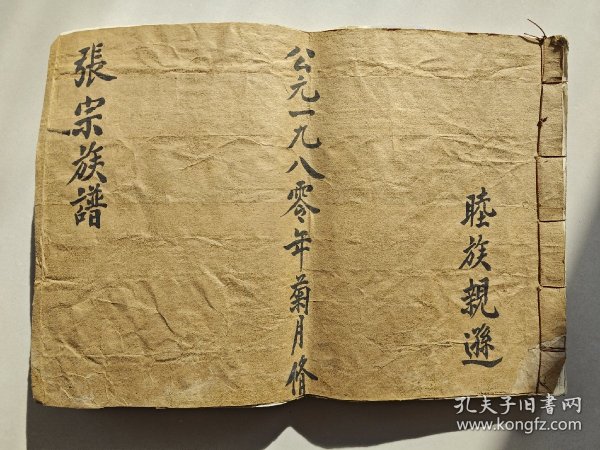 睦族親遜
公元一九八零年菊月修
張宗族譜
孔夫子旧书网
www.kongfz.com